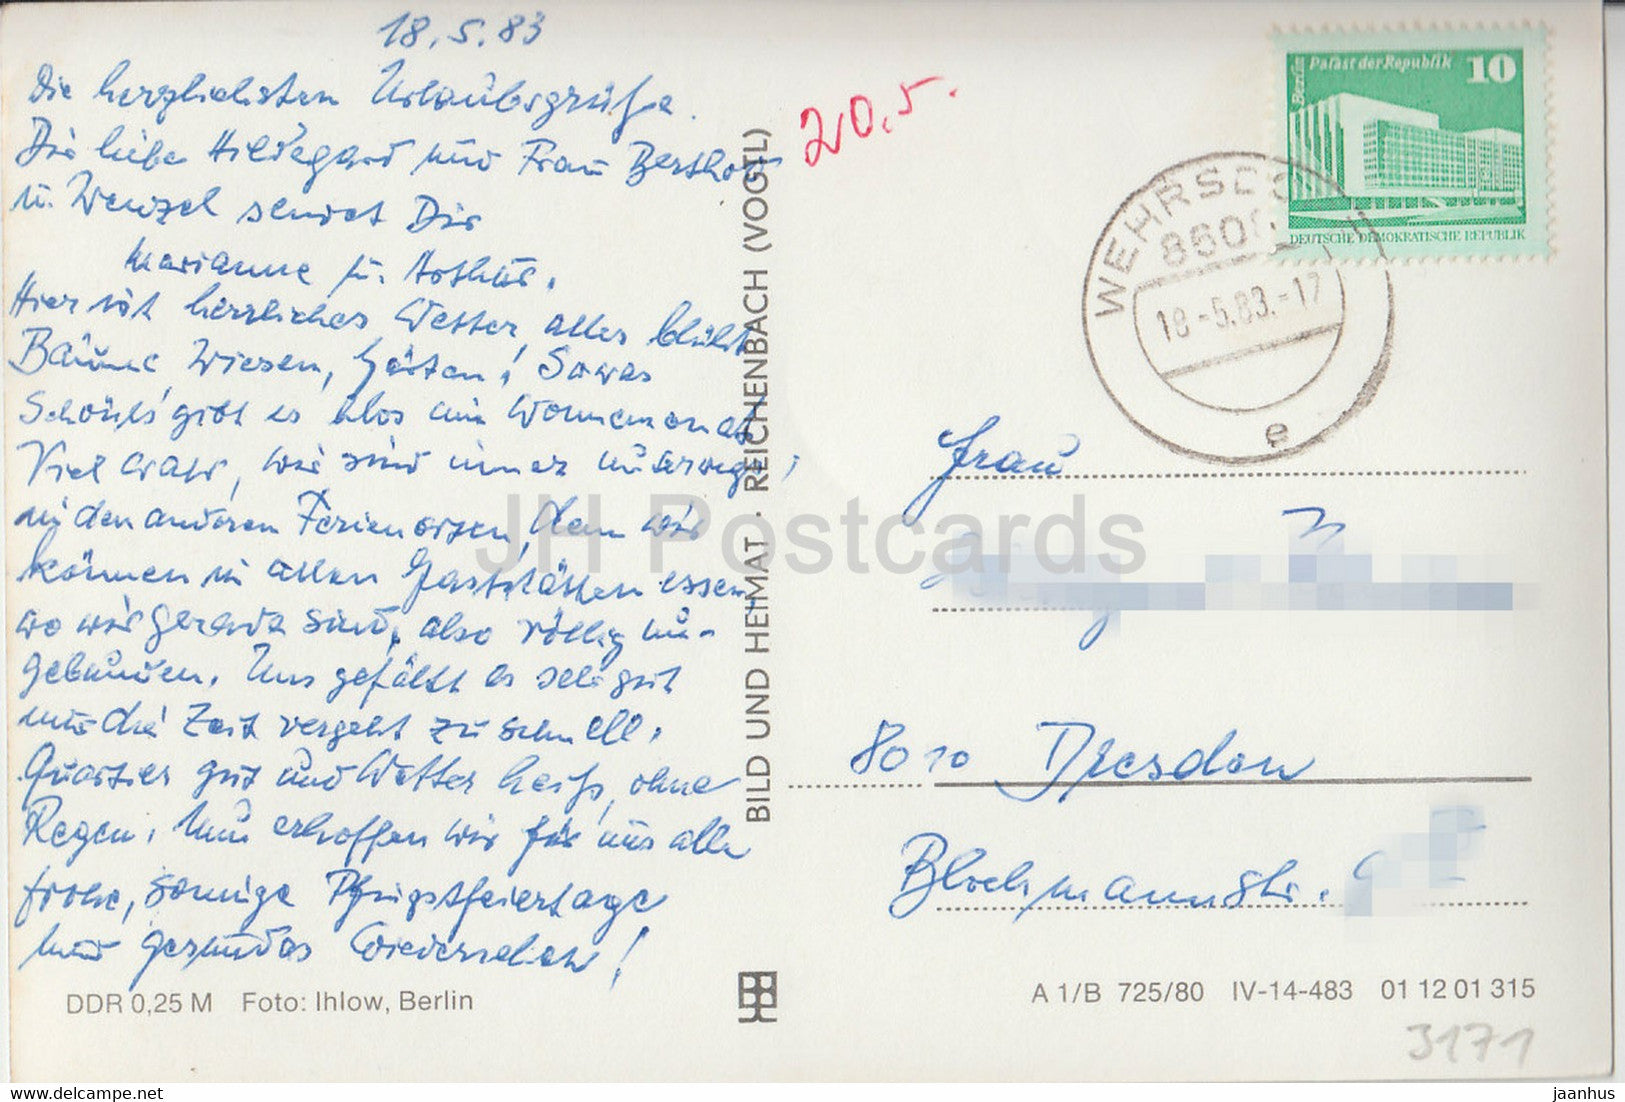 18.5.83
Die herzlichsten Urlaubsgrüße
Dir liebe Hildegard und Frau Berthold
u. Wenzel sendet Dir
Marianne u.
Hier ist herrliches Wetter, alles blüht
Bäume, Wiesen, Gärten! Sowas
Schön's gibt es blos im Wonnemonat
Viel, wir sind immer unterwegs,
in den anderen Ferienorten, denn wir
können in allen Gaststätten essen,
wo wir gerade sind, also völlig un-
gebunden. Uns gefällt es sehr gut
nur die Zeit vergeht zu schnell.
Quartier gut und Wetter heiß, ohne
Regen. Nun erhoffen wir für uns alle
frohe, sonnige Pfingstfeiertage
und gesundes Wiedersehen!
DDR 0,25 M Foto: Ihlow, Berlin
BILD UND HEIMAT · REICHENBACH (VOGTL)
20.5.
Berlin Palast der Republik 10
DEUTSCHE DEMOKRATISCHE REPUBLIK
8600
18.-5.83.-17
e
Frau
8010 Dresden
Blochmannstr.
A 1/B 725/80 IV-14-483 01 12 01 315
3171
JH Postcards
jaanhus